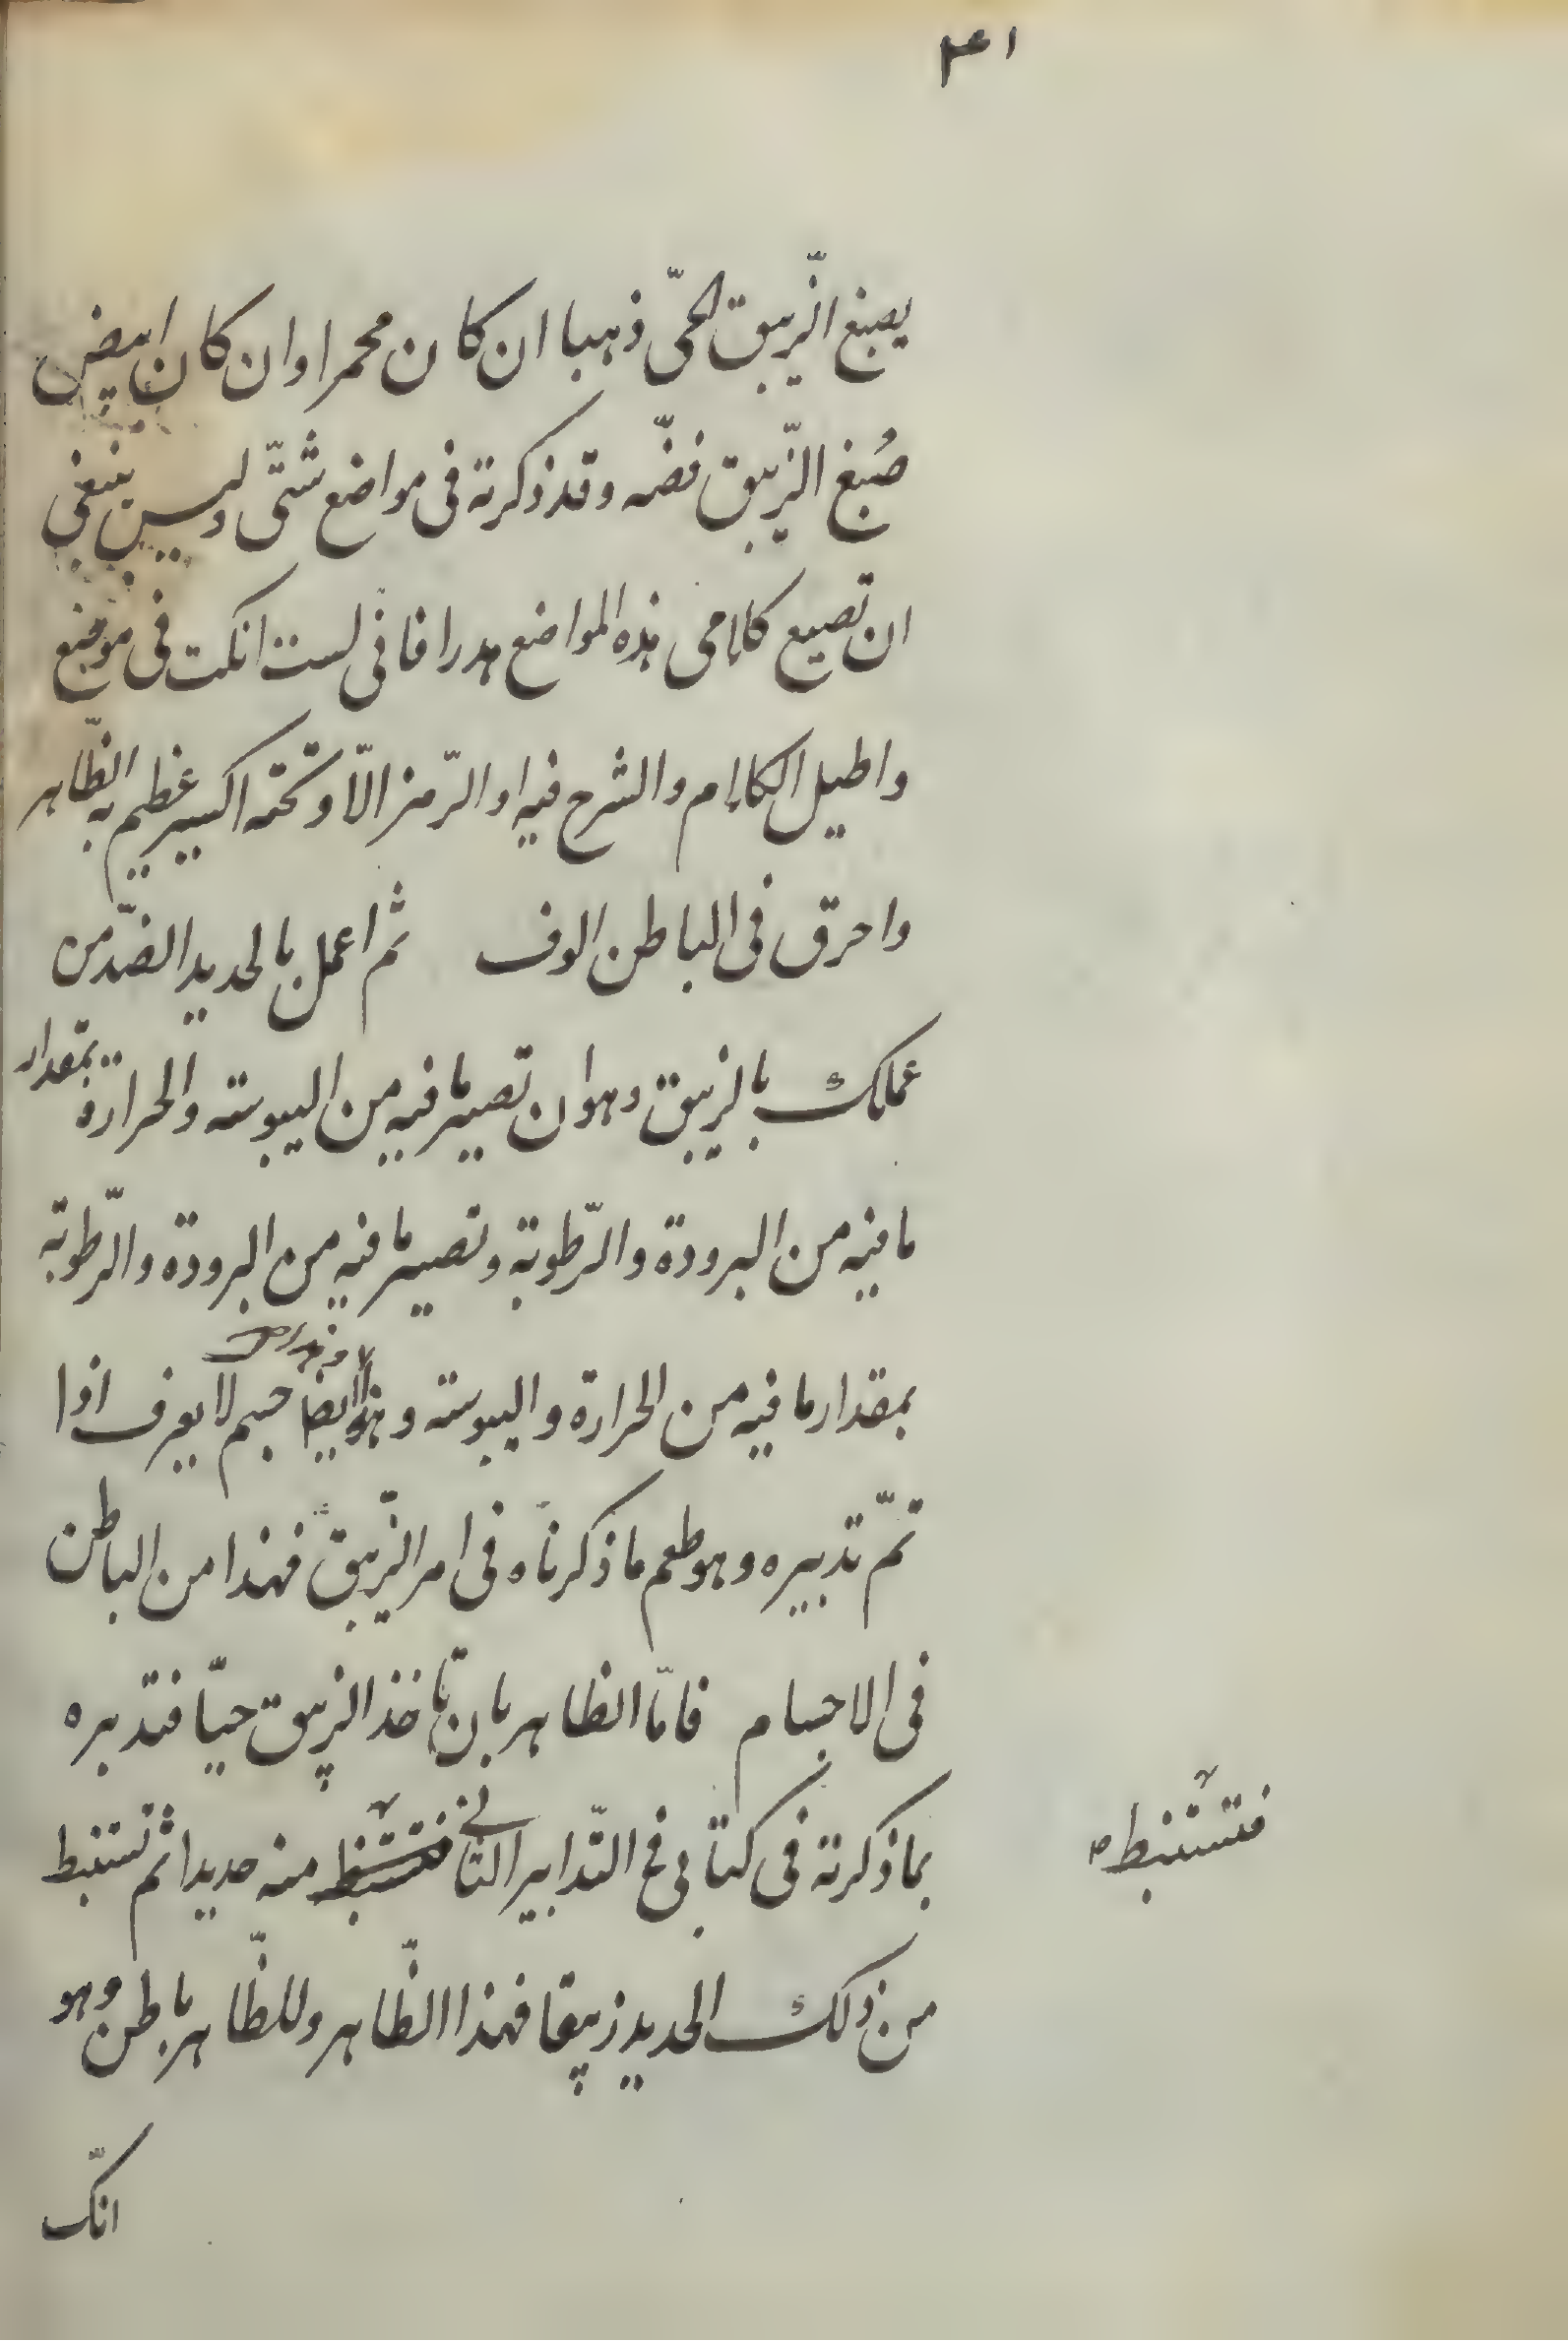 يصبغ الزّيبق الحىّ ذهبا ان كان محمرا وان كان ابيض
صُبغ الزّيبق فضّه وقد ذكرته فى مواضع شتّى وليس ينبغى
ان تضيع كلامى هذه المواضع هدرا فانى لست انكت فى موضع
واطيل الكلام والشرح فيه او الرّمز الّا وتحته اكسير عظيم به الظّاهر
واحرق فى الباطن الوف ثم اعمل بالحديد الضدّ من
عملك بالزيبق وهو ان تصير ما فيه من اليبوسته والحرارة بمقدار
ما فيه من البرودة والرّطوبة وتصير ما فيه من البرودة والرّطوبة
بمقدار ما فيه من الحرارة واليبوسته وهو ايضا جسم لا يعرف اذا
تمّ تدبيره وهو طعم ما ذكرناه فى امر الزّيبق فهذا من الباطن
فى الاجسام فامّا الظاهر بان تاخذ الزيبق حيّا فتدبره
بما ذكرته فى كتابى فى التّدابير الثانى منه حديدا ثم تستنبط
فتستنبط
من ذلك الحديد زيبقا فهذا الظّاهر وللظّاهر باطن وهو
انّك